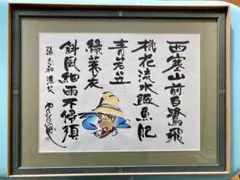 西塞山前白鷺飛
桃花流水鱖魚肥
青箬笠
綠蓑衣
斜風細雨不須
張志和 漁父